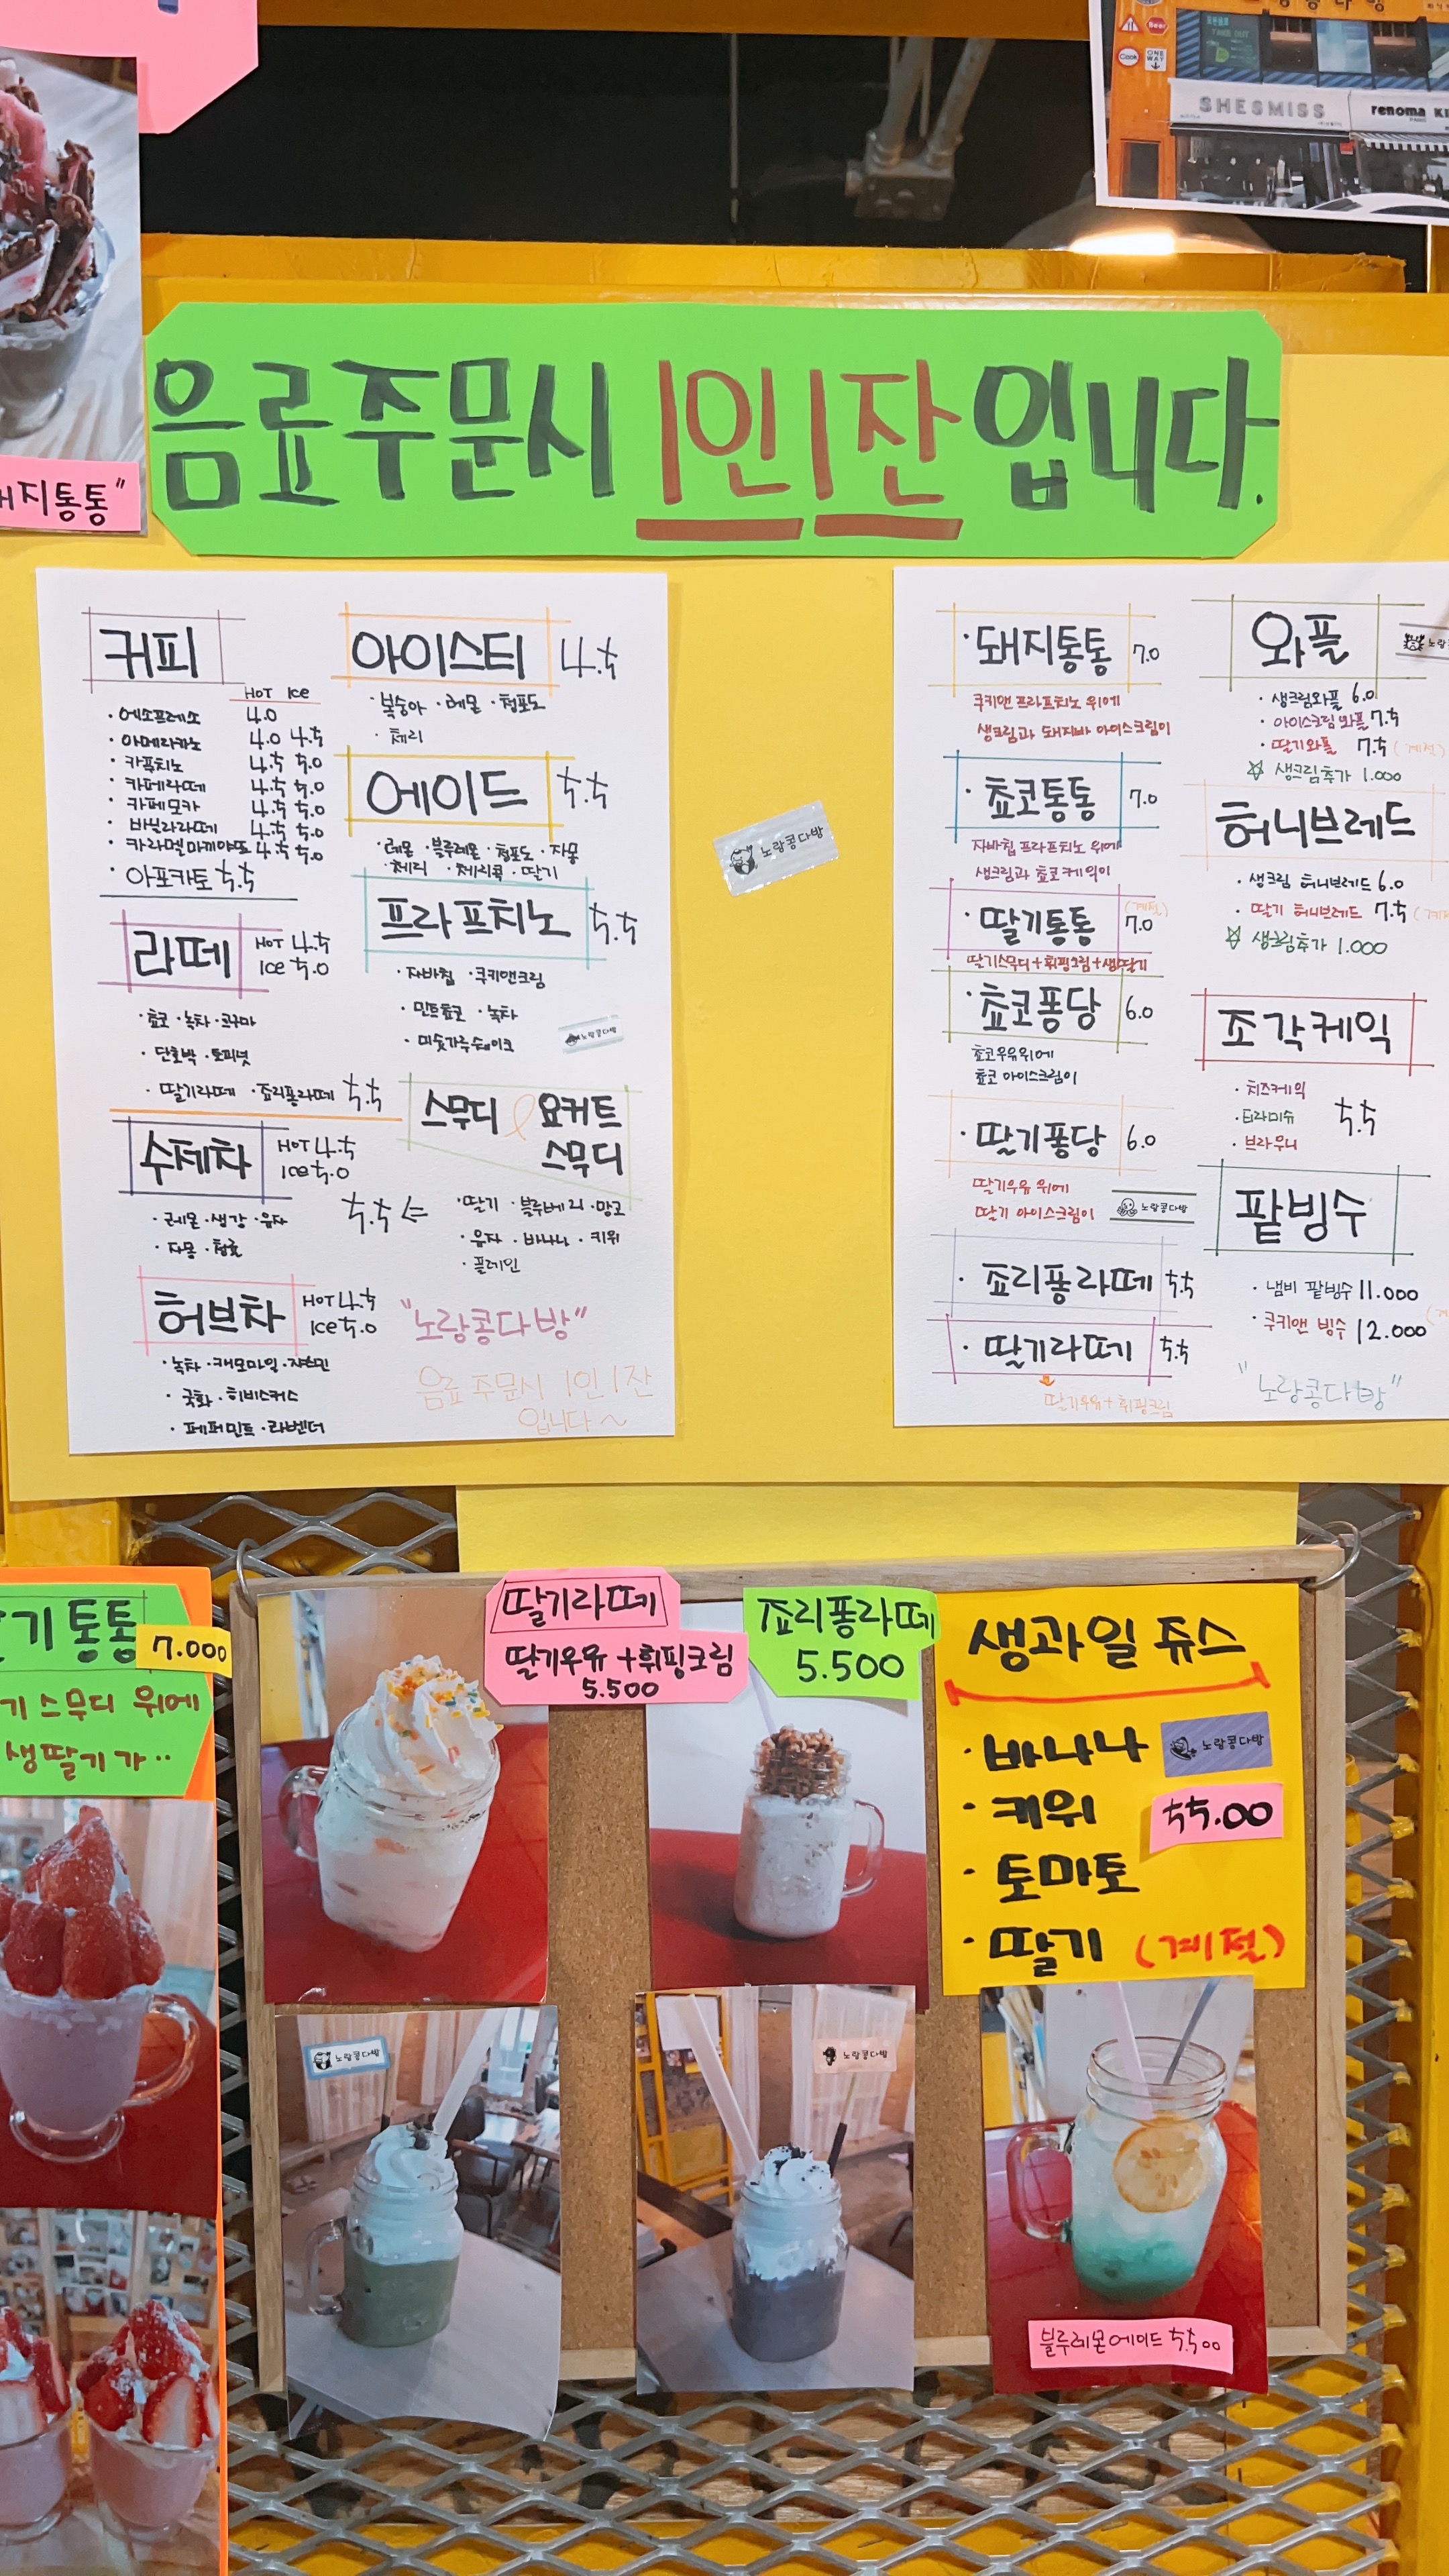 Beer
TAKE OUT
Cook
ONE WAY
SHESMISS
renoma
음료주문시 1인1잔 입니다.
지통통"
커피
HOT Ice
· 에소프레소 4.0
· 아메리카노 4.0 4.5
· 카푹치노 4.5 5.0
· 카페라떼 4.5 5.0
· 카페모카 4.5 5.0
· 바닐라라떼 4.5 5.0
· 카라멜마끼야또 4.5 5.0
· 아포카토 5.5
라떼
HOT 4.5
Ice 5.0
· 쵸코 · 녹차 · 고구마
· 단호박 · 토피넛
· 딸기라떼 · 죠리퐁라떼 5.5
수제차
HOT 4.5
Ice 5.0
· 레몬 · 생강 · 유자
· 자몽 · 청귤
허브차
HOT 4.5
Ice 5.0
· 녹차 · 캐모마일 · 쟈스민
· 국화 · 히비스커스
· 페퍼민트 · 라벤더
아이스티 4.5
· 복숭아 · 레몬 · 청포도
· 체리
에이드 5.5
· 레몬 · 블루레몬 · 청포도 · 자몽
· 체리 · 체리콕 · 딸기
프라프치노 5.5
· 자바칩 · 쿠키앤크림
· 민트쵸코 · 녹차
· 미숫가루쉐이크
노랑콩다방
스무디 요거트
스무디
5.5 ⇐
· 딸기 · 블루베리 · 망고
· 유자 · 바나나 · 키위
· 플레인
"노랑콩다방"
음료 주문시 1인1잔
입니다~
노랑콩다방
· 돼지통통 7.0
쿠키앤 프라프치노 위에
생크림과 돼지바 아이스크림이
· 쵸코통통 7.0
자바칩 프라프치노 위에
생크림과 쵸코케익이
· 딸기통통 (계절) 7.0
딸기스무디+휘핑크림+생딸기
· 쵸코퐁당 6.0
쵸코우유위에
쵸코 아이스크림이
· 딸기퐁당 6.0
딸기우유 위에
딸기 아이스크림이
노랑콩다방
· 죠리퐁라떼 5.5
· 딸기라떼 5.5
딸기우유+휘핑크림
와플
· 생크림와플 6.0
· 아이스크림 와플 7.5
· 딸기와플 7.5 (계절)
☆ 생크림추가 1.000
허니브레드
· 생크림 허니브레드 6.0
· 딸기 허니브레드 7.5
☆ 생크림추가 1.000
조각케익
· 치즈케익
· 티라미슈 5.5
· 브라우니
팥빙수
· 냄비 팥빙수 11.000
· 쿠키앤 빙수 12.000
"노랑콩다방"
기통통
7.000
기 스무디 위에
생딸기가..
딸기라떼
딸기우유+휘핑크림
5.500
죠리퐁라떼
5.500
생과일 쥬스
· 바나나
노랑콩다방
· 키위
55.00
· 토마토
· 딸기 (계절)
노랑콩다방
노랑콩다방
블루레몬에이드 5.500